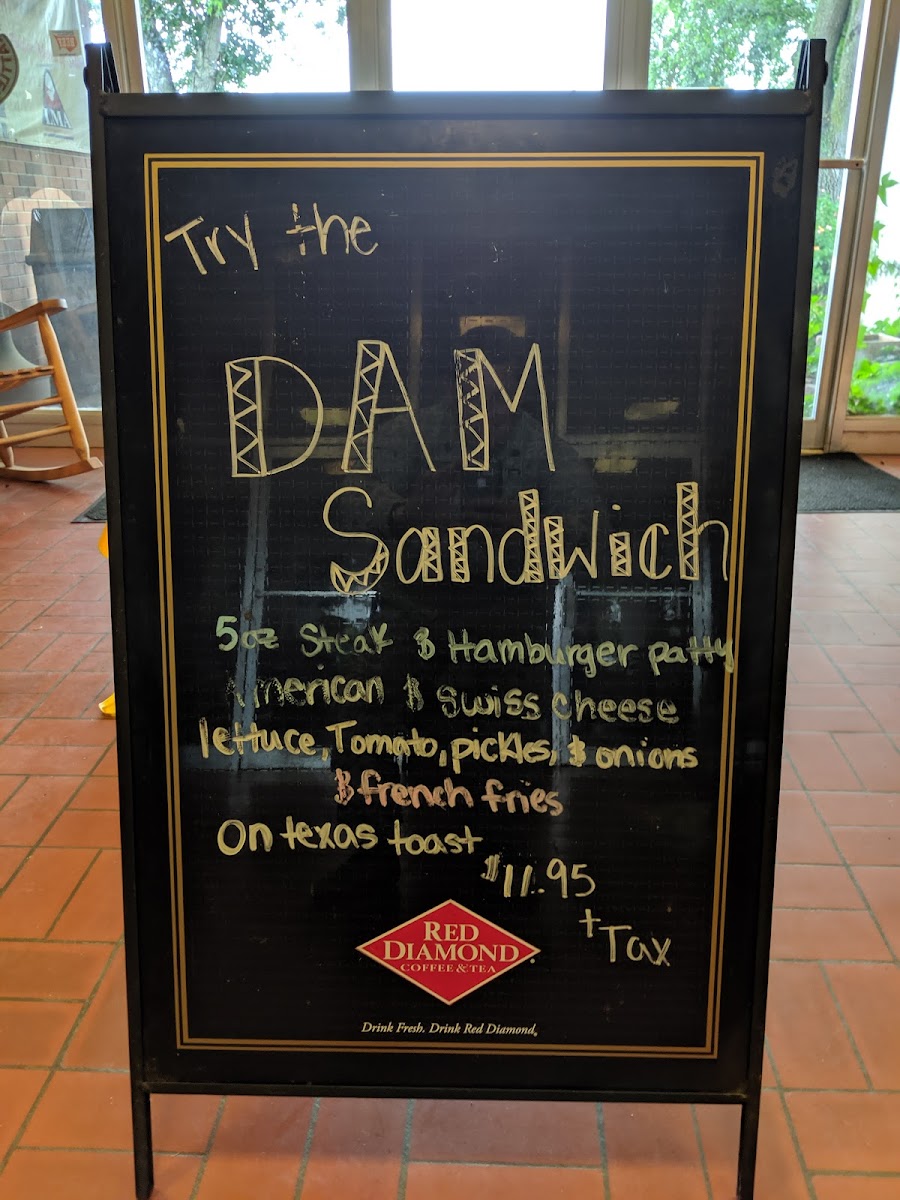 Try the
DAM
Sandwich
5oz Steak & Hamburger patty
American & Swiss cheese
lettuce, Tomato, pickles, & onions
& french fries
On texas toast
$11.95
+ Tax
RED
DIAMOND
COFFEE & TEA
Drink Fresh. Drink Red Diamond.